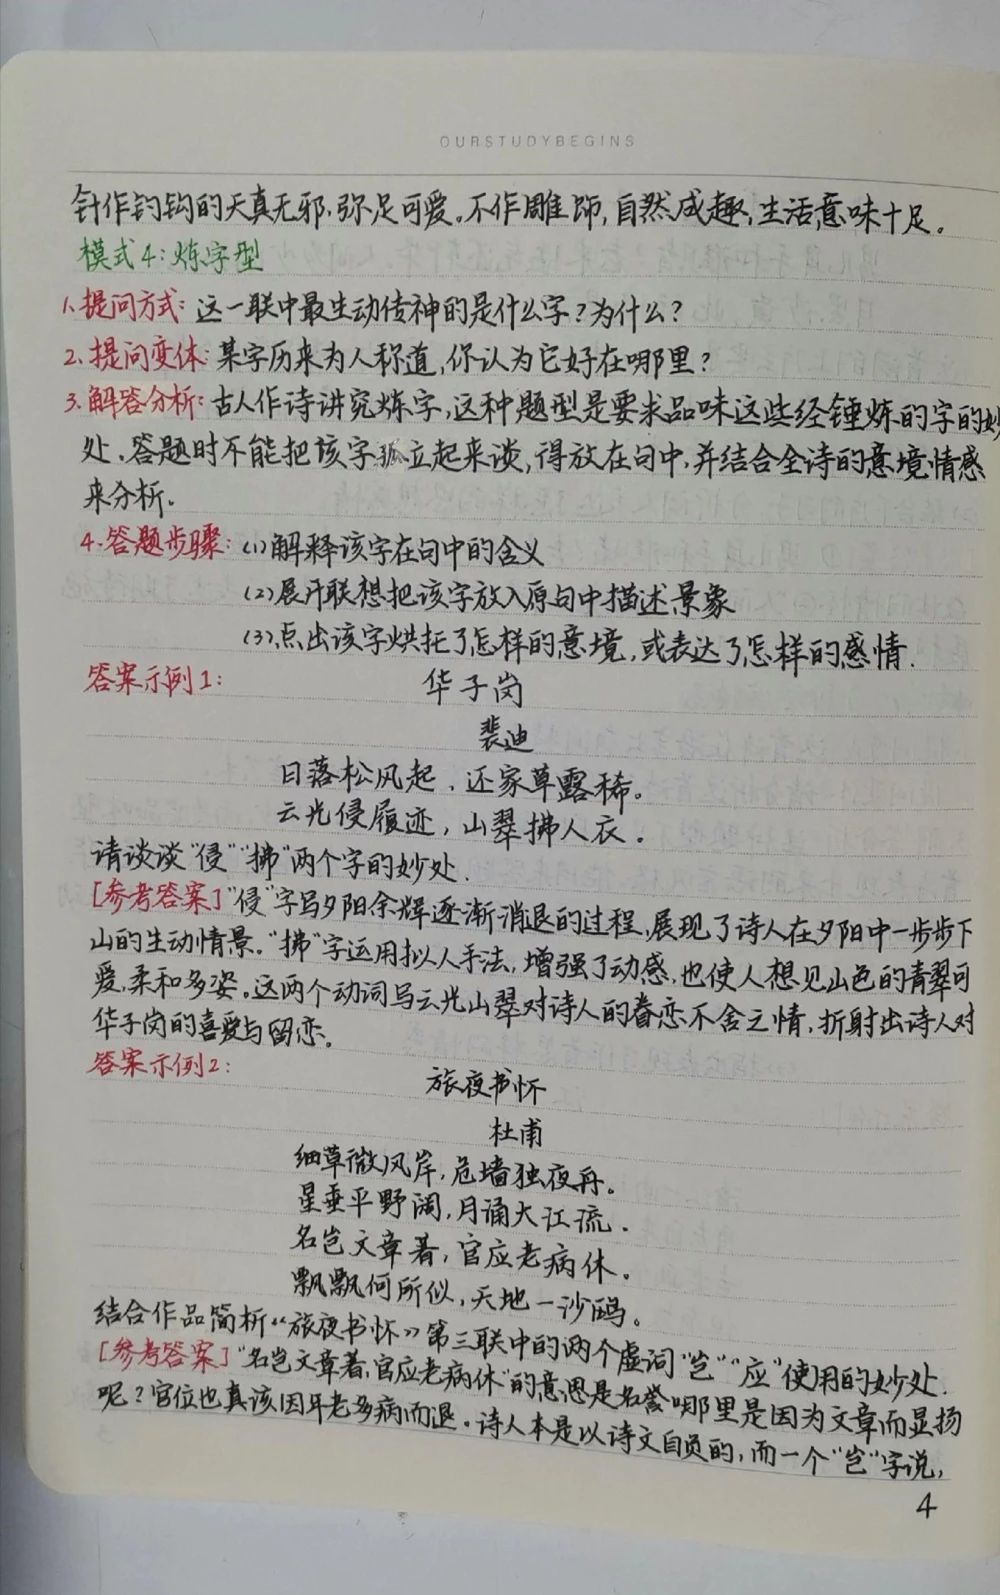 OURSTUDYBEGINS
针作钓钩的天真无邪,弥足可爱。不作雕饰,自然成趣,生活意味十足。
模式4:炼字型
1.提问方式:这一联中最生动传神的是什么字?为什么?
2.提问变体:某字历来为人称道,你认为它好在哪里?
3.解答分析:古人作诗讲究炼字,这种题型是要求品味这些经锤炼的字的妙
处。答题时不能把该字孤立起来谈,得放在句中,并结合全诗的意境情感
来分析。
4.答题步骤:(1)解释该字在句中的含义
(2)展开联想把该字放入原句中描述景象
(3)点出该字烘托了怎样的意境,或表达了怎样的感情.
答案示例1:
华子岗
裴迪
日落松风起,还家草露稀。
云光侵履迹,山翠拂人衣。
请谈谈“侵”“拂”两个字的妙处.
[参考答案]“侵”字写夕阳余辉逐渐消退的过程,展现了诗人在夕阳中一步步下
山的生动情景。“拂”字运用拟人手法,增强了动感,也使人想见山色的青翠可
爱,柔和多姿。这两个动词写云光山翠对诗人的眷恋不舍之情,折射出诗人对
华子岗的喜爱与留恋。
答案示例2:
旅夜书怀
杜甫
细草微风岸,危墙独夜舟。
星垂平野阔,月涌大江流.
名岂文章著,官应老病休。
飘飘何所似,天地一沙鸥。
结合作品简析“旅夜书怀》第三联中的两个虚词“岂”“应”使用的妙处.
[参考答案]“名岂文章著,官应老病休”的意思是名誉哪里是因为文章而显扬
呢?官位也真该因年老多病而退。诗人本是以诗文自负的,而一个“岂”字说,
4